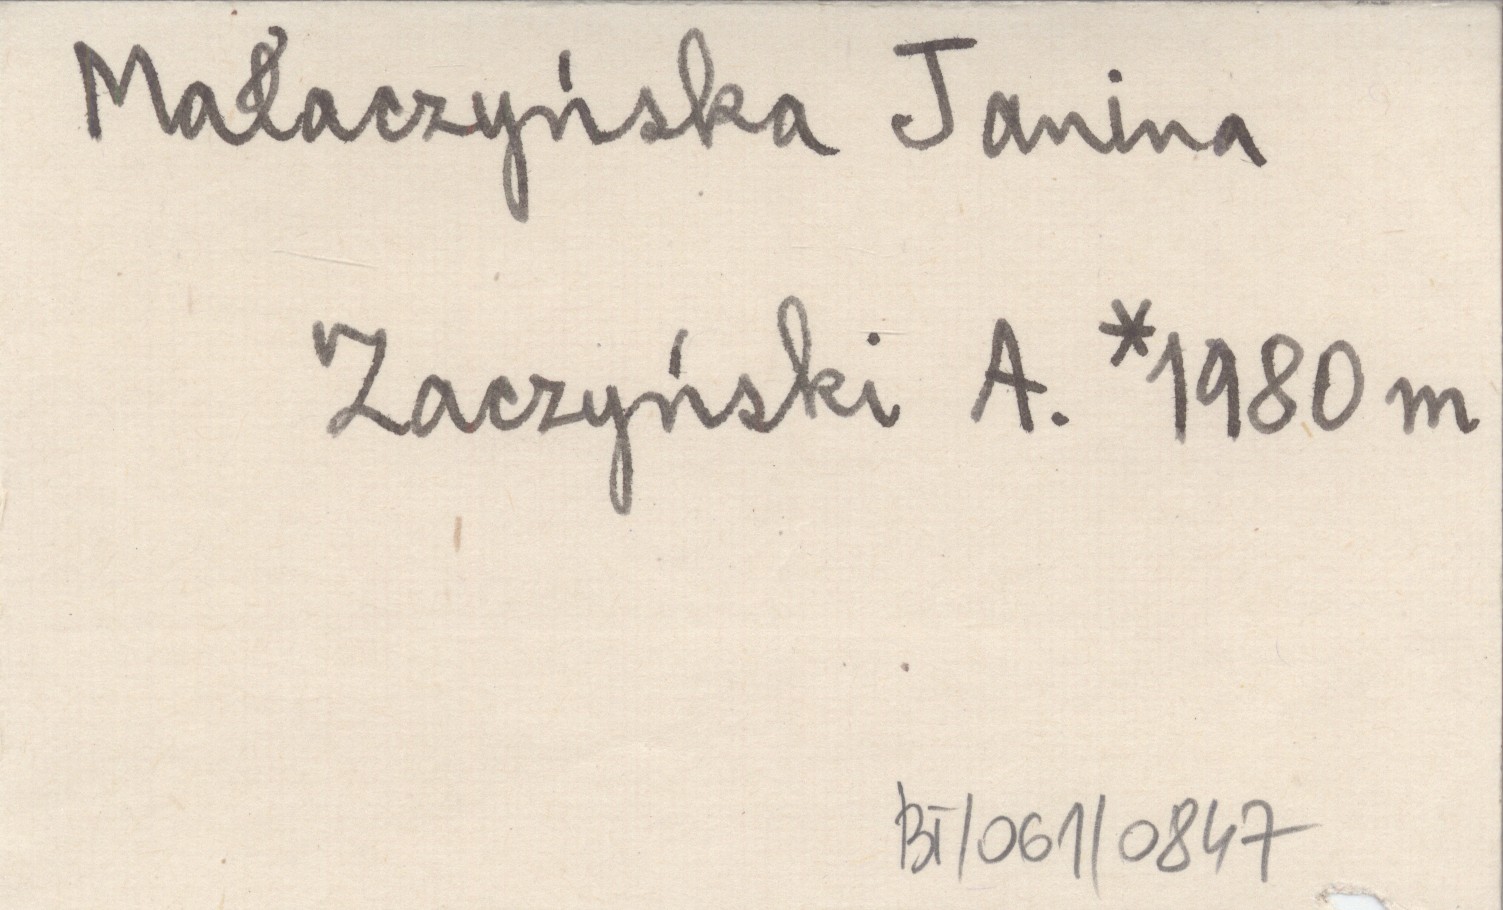 Małaczyńska Janina
Zaczyński A. *1980 m
BI/061/0847